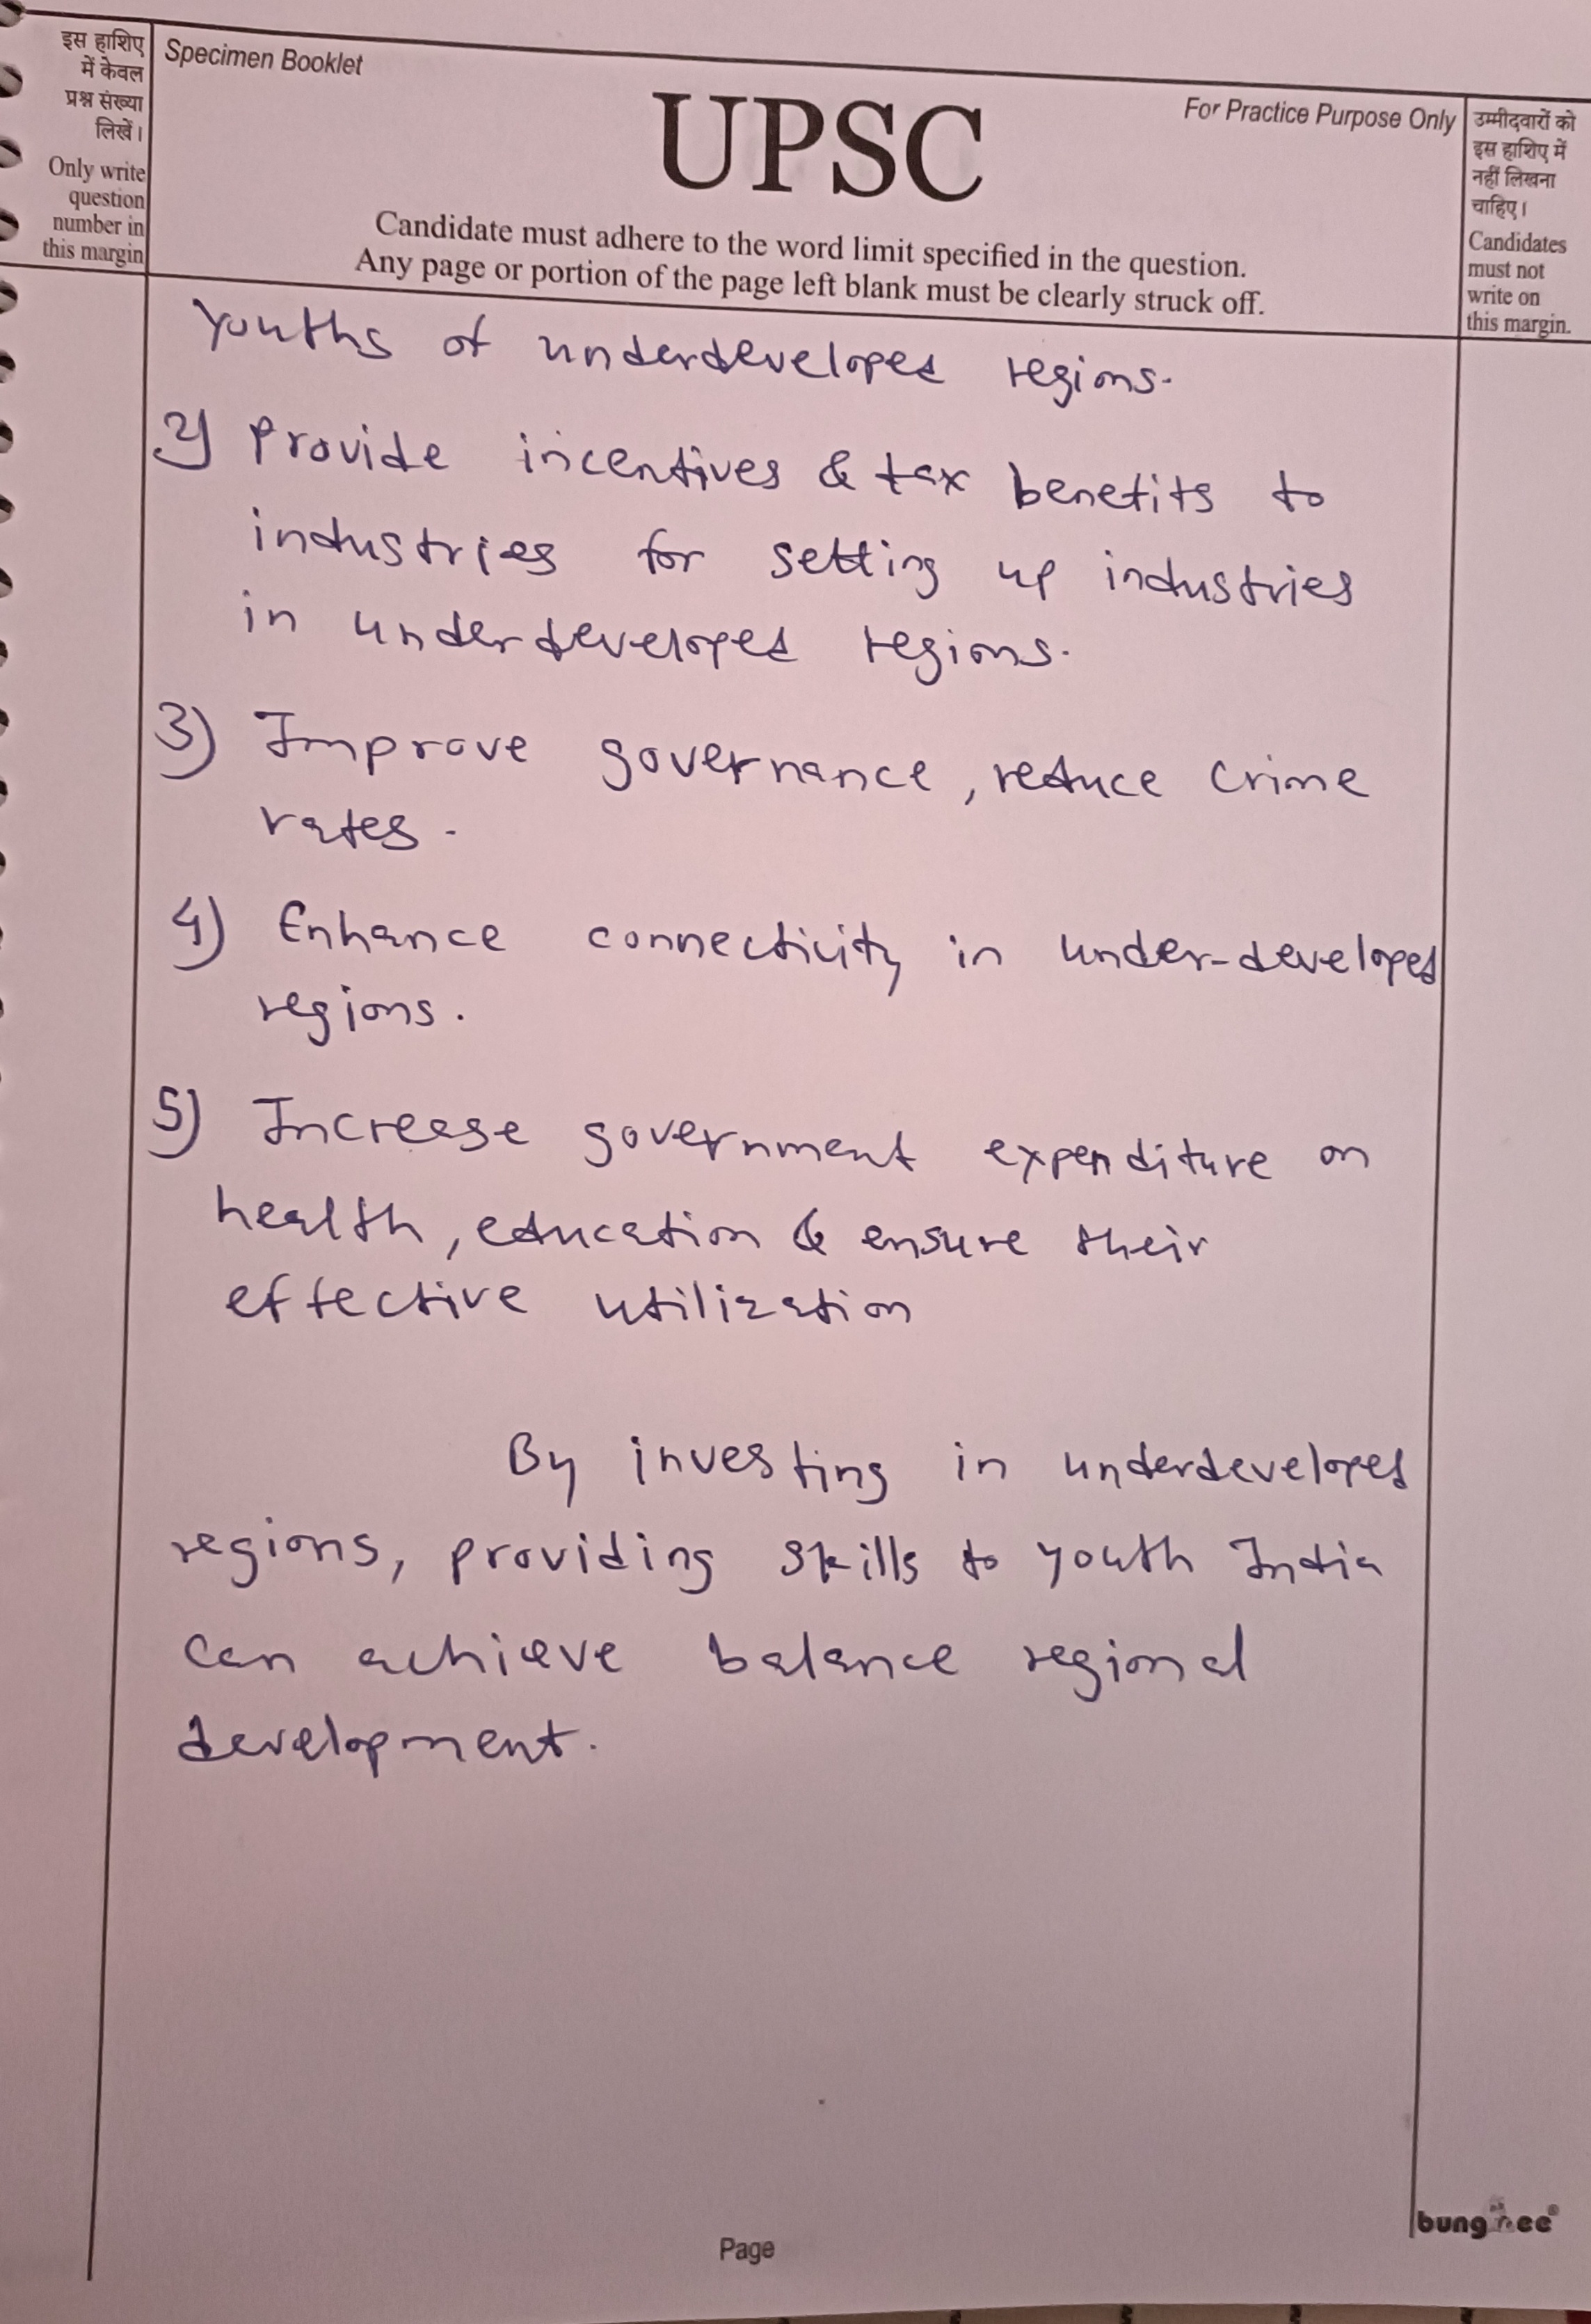 इस हाशिए
में केवल
प्रश्न संख्या
लिखें।
Only write
question
number in
this margin
Specimen Booklet
UPSC
For Practice Purpose Only
Candidate must adhere to the word limit specified in the question.
Any page or portion of the page left blank must be clearly struck off.
उम्मीदवारों को
इस हाशिए में
नहीं लिखना
चाहिए।
Candidates
must not
write on
this margin.
Youths of underdeveloped regions.
2) Provide incentives & tax benefits to
industries for setting up industries
in underdeveloped regions.
3) Improve governance, reduce crime
rates.
4) Enhance connectivity in under-developed
regions.
5) Increase government expenditure on
health, education & ensure their
effective utilization
By investing in underdeveloped
regions, providing skills to youth India
can achieve balance regional
development.
Page